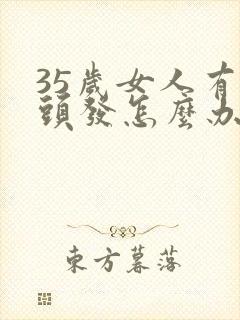 35歲女人有
頭發怎麼办
東方暮落